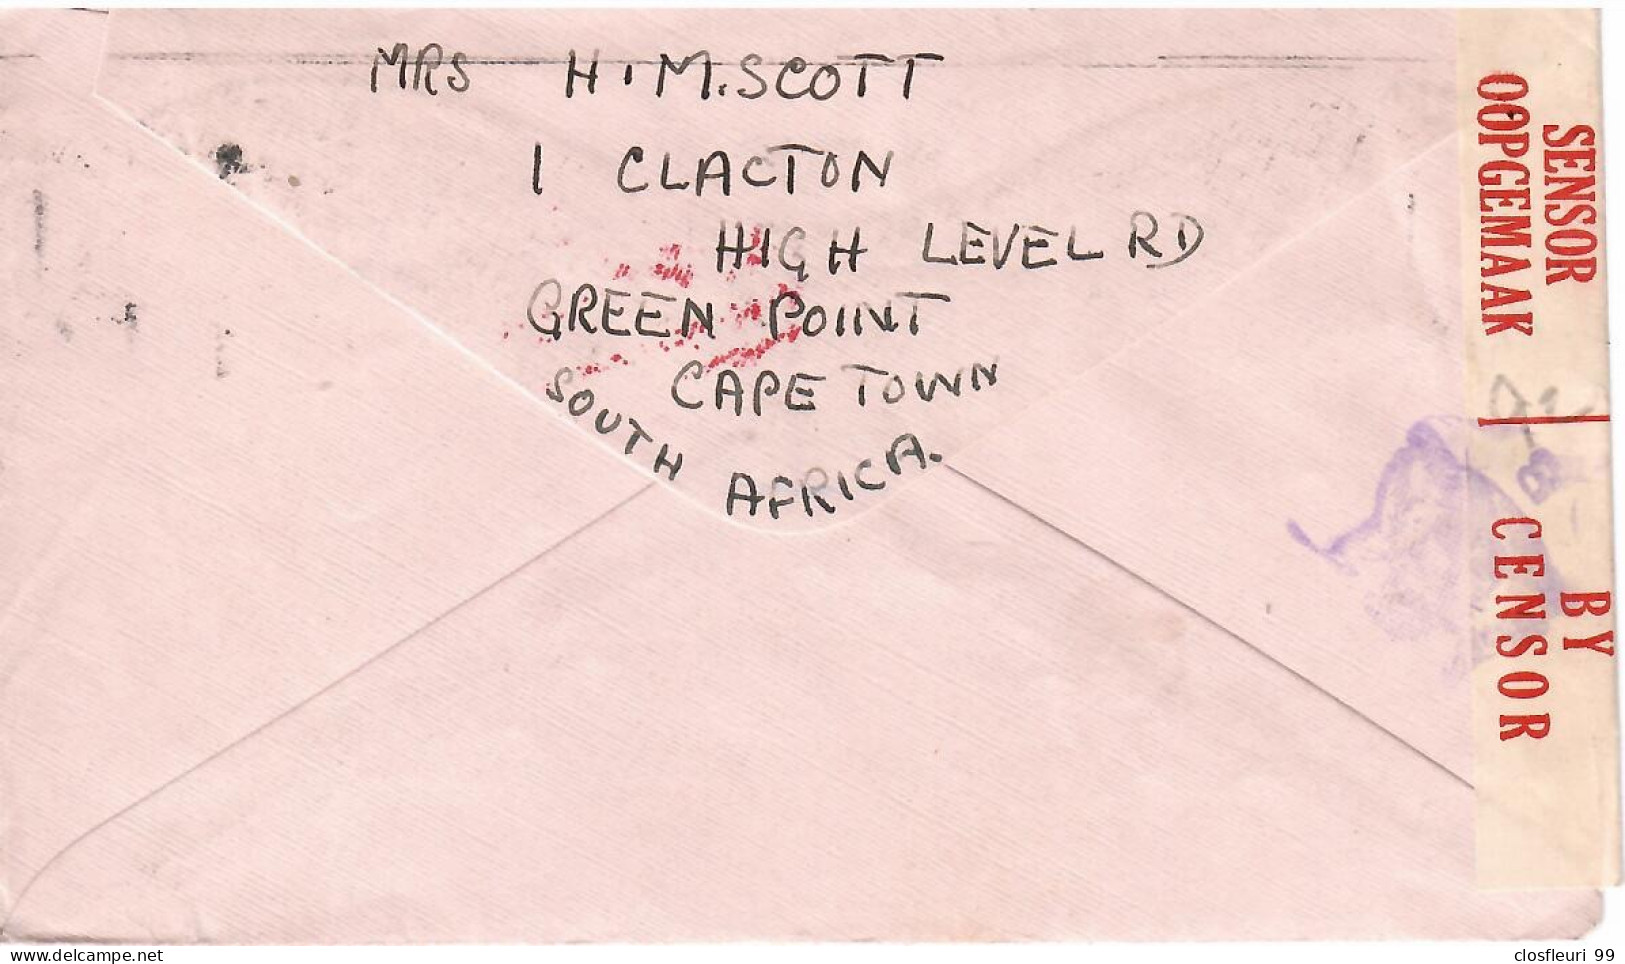 MRS H.M.SCOTT
1 CLACTON
HIGH LEVEL RD
GREEN POINT
CAPE TOWN
SOUTH AFRICA.
SENSOR
OOPGEMAAK
BY
CENSOR
www.delcampe.net
closfleuri 99